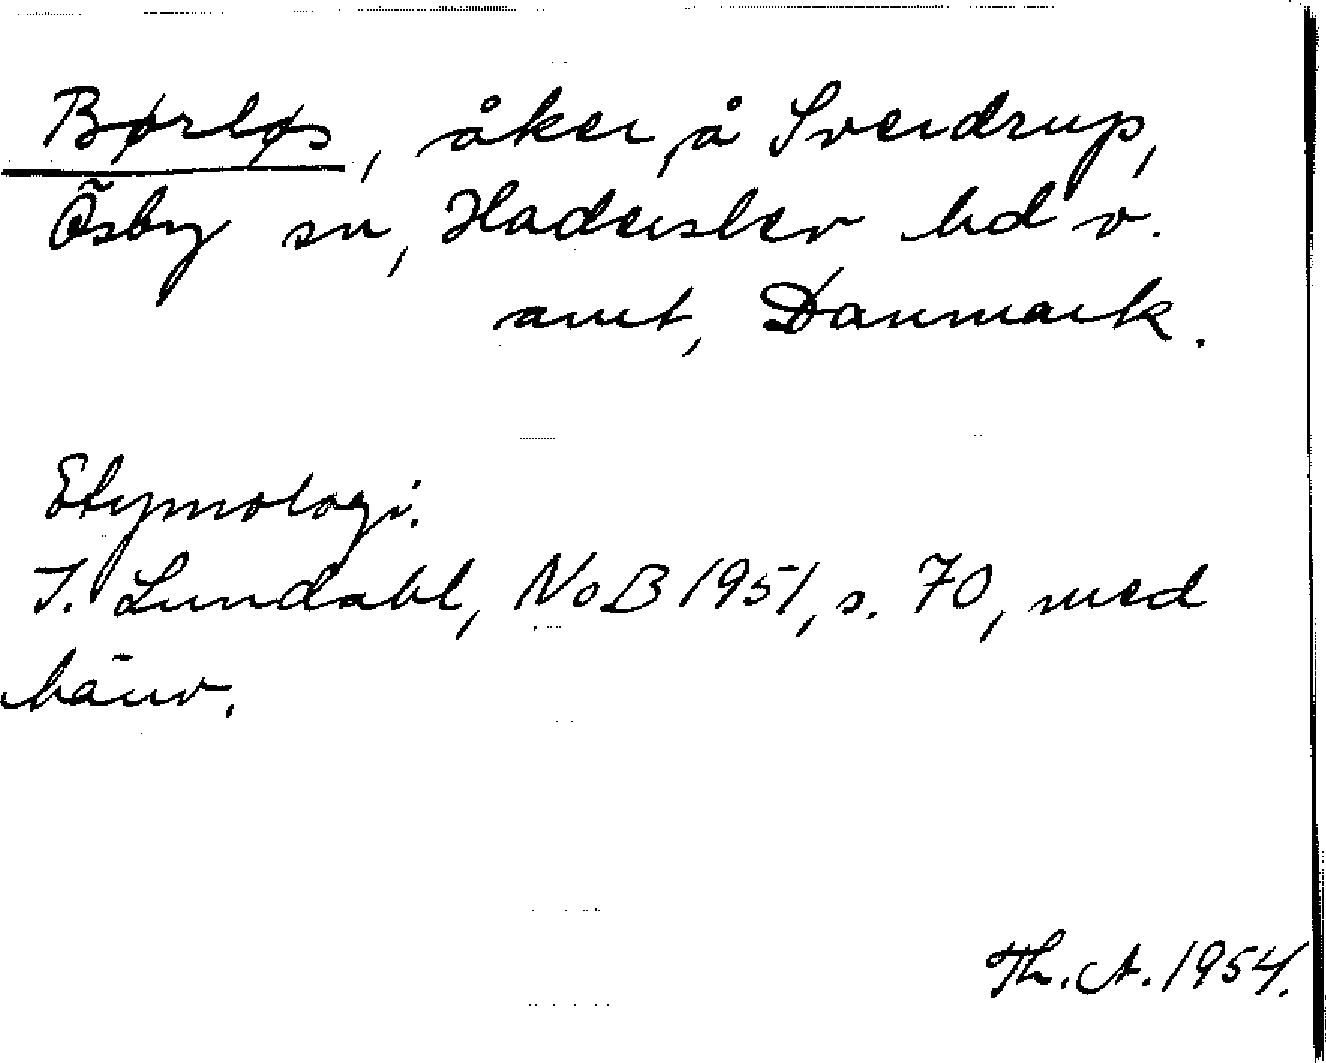 Børløs, åker, å Sverdrup,
Ösby sn, Haderslev hd o.
amt, Danmark.
Etymologi.
I. Lundahl, NoB 1951, s. 70, med
hänv.
Th. A. 1954.